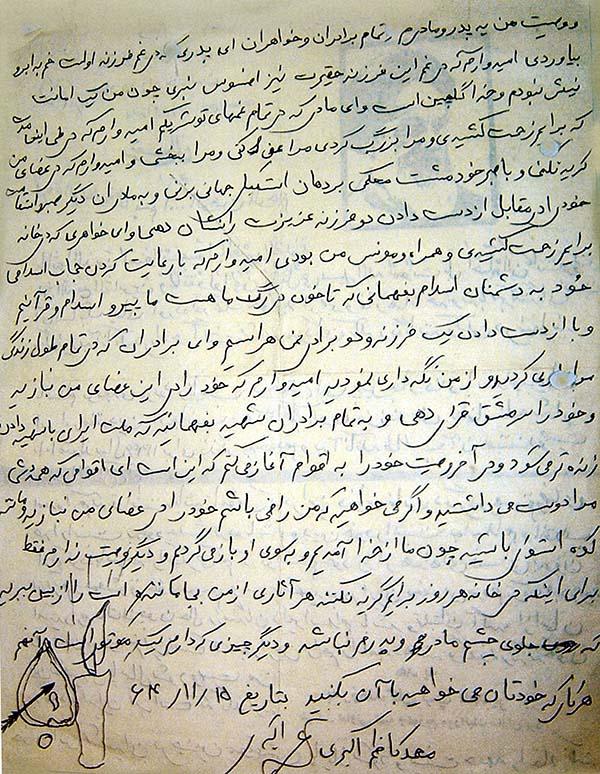 و وصیت من به پدر و مادرم و تمام برادران و خواهران ای پدری که در غم فرزند اولت خم به ابرو
نیاوردی امیدوارم که در غم این فرزند حقیرت نیز افسوس نبری چون من یک امانت
بیش نبودم و خدا گلچین است وای مادری که در تمام غمهای تو شریکم امیدوارم که در طی این مدت
که برایم زحمت کشیدی و مرا بزرگ کردی مرا عفو کنی و مرا ببخشی و امیدوارم که در عضای من
گریه نکنی و با صبر خود مشت محکمی بر دهان استکبار جهانی بزنی و به مادران دیگر صبر و استقامت
خود را در مقابل از دست دادن دو فرزند عزیزت را نشان دهی وای خواهری که در خانه
برایم زحمت کشیدی و همراه و مونس من بودی امیدوارم که با رعایت کردن حجاب اسلامی
خود به دشمنان اسلام بفهمانی که تا خون در رگ ما هست ما پیرو اسلام و قرآنیم
و با از دست دادن یک فرزند و دو برادر نمی هراسیم وای برادران که در تمام طول زندگی
مرا یاری کردید و از من نگه داری نمودید امیدوارم که خود را در این عضای من نبازید
و خود را سرمشق قرار دهی و به تمام برادران شهید بفهمانید که ملت ایران با شهید دادن
زنده تر می شود و در آخر وصیت خود را به اقوام آغاز می کنم که این است ای اقوامی که همه شما
مرا دوست می داشتید و اگر می خواهید که من راضی باشم خود را در عضای من نبازید و مانند
کوه استوار باشید چون ما از خدا آمدیم و به سوی او باز می گردیم و دیگر وصیتی ندارم فقط
برای اینکه در خانه هر روز برایم گریه نکنند هر آثاری از من بجا مانده است را از بین ببرید
که جلوی چشم مادرم و پدرم نباشد و دیگر چیزی که دارم یک موتور است آنهم
هر کاری که خودتان می خواهید با آن بکنید بتاریخ ۶۴/۱۱/۱۵
محمد کاظم اکبری